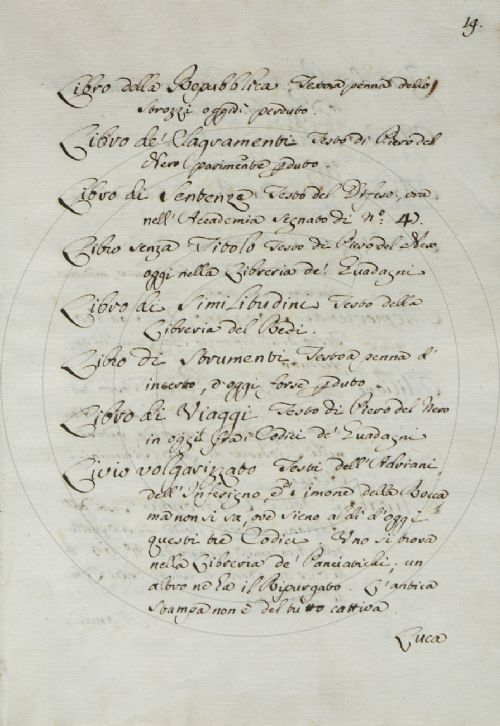 19.
Libro della Repubblica Testo a penna dello
Strozzi oggidì perduto.
Libro de' Sagramenti Testo di Piero del
Nero parimente pduto.
Libro di Sentenze Testo del Difeso, ora
nell'Accademia Segnato di Nº. 4).
Libro senza Titolo Testo di Piero del Nero,
oggi nella Libreria de' Guadagni
Libro di Similitudini Testo della
Libreria del Redi.
Libro di Strumenti Testo a penna d'
incerto, d'oggi forse pduto.
Libro di Viaggi Testo di Piero del Nero
in oggi fra i Codici de' Guadagni
Livio volgarizzato Testi dell'Adriani
dell'Inferigno, e di Simone della Rocca
ma non si sa, ove sieno al dì d'oggi
questi tre Codici. Uno si trova
nella Libreria de' Panciatichi; un
altro ne ha il Ripurgato. L'antica
Stampa non è del tutto cattiva.
Luca